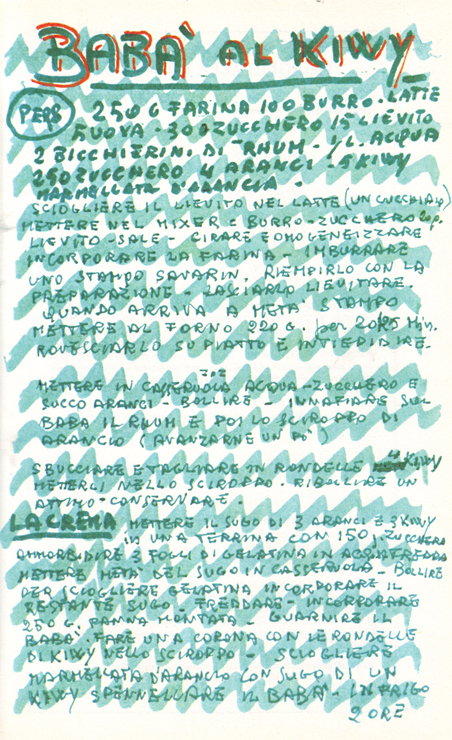 BABA' AL KIWY
PER8 250 G FARINA 100 BURRO - LATTE
UOVA - 30 ZUCCHERO 15 LIEVITO
2 BICCHIERINI DI RHUM - ACQUA
250 ZUCCHERO 4 ARANCI - 5 KIWY
MARMELLATA D'ARANCIA -
SCIOGLIERE IL LIEVITO NEL LATTE (UN CUCCHIAIO)
METTERE NEL MIXER BURRO - ZUCCHERO
LIEVITO - SALE - GIRARE E OMOGENEIZZARE
INCORPORARE LA FARINA - IMBURRARE
UNO STAMPO SAVARIN, RIEMPIRLO CON LA
PREPARAZIONE - LASCIARLO LIEVITARE.
QUANDO ARRIVA A META' STAMPO
METTERE AL FORNO 220 G. per Min.
ROVESCIARLO SU PIATTO E INTIEPIDIRE.
METTERE IN CASSERUOLA ACQUA - ZUCCHERO E
SUCCO ARANCI - BOLLIRE - INNAFIARE SUL
BABA IL RHUM E POI LO SCIROPPO DI
ARANCIO (AVANZARNE UN PO')
SBUCCIARE E TAGLIARE IN RONDELLE 4 KIWY
METTERLI NELLO SCIROPPO - RIBOLLIRE UN
ATTIMO - CONSERVARE -
LA CREMA METTERE IL SUGO DI 3 ARANCI E 3 KIWY
IN UNA TERRINA CON 150 g. ZUCCHERO
AMMORBIDIRE 3 FOGLI DI GELATINA IN ACQUA FREDDA
METTERE META' DEL SUGO IN CASSERUOLA - BOLLIRE
PER SCIOGLIERE GELATINA INCORPORARE IL
RESTANTE SUGO - FREDDARE - INCORPORARE
250 G. PANNA MONTATA - GUARNIRE IL
BABA' - FARE UNA CORONA CON LE RONDELLE
DI KIWY NELLO SCIROPPO - SCIOGLIERE
MARMELLATA D'ARANCIO CON SUGO DI UN
KIWY SPENNELLARE IL BABA' - IN FRIGO
2 ORE